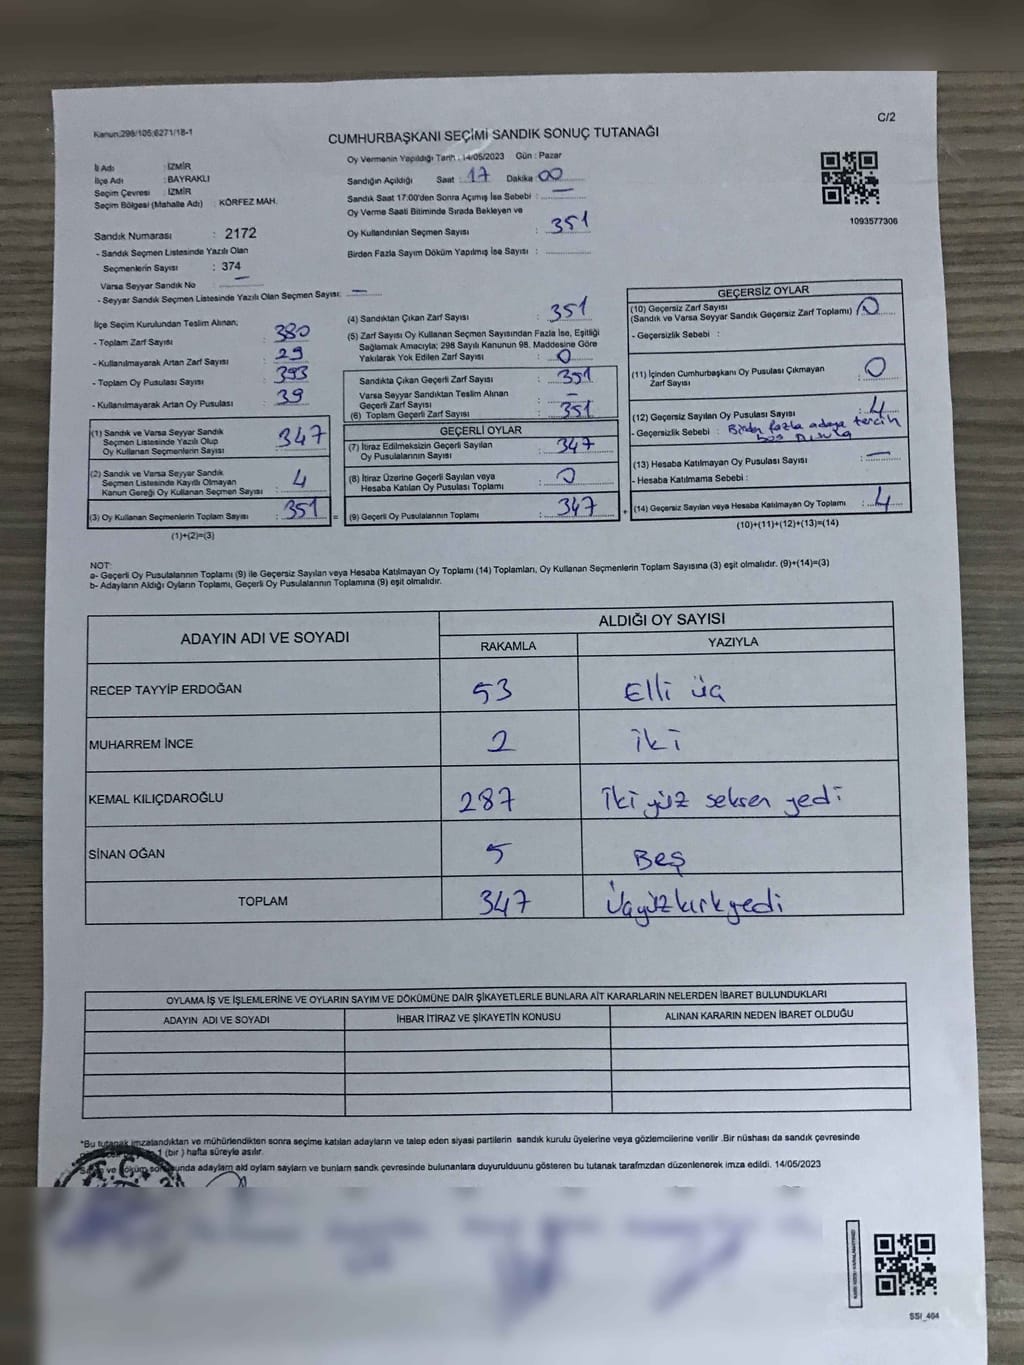 Kanun:298/105;6271/18-1
C/2
CUMHURBAŞKANI SEÇİMİ SANDIK SONUÇ TUTANAĞI
İl Adı : İZMİR
İlçe Adı : BAYRAKLI
Seçim Çevresi : İZMİR
Seçim Bölgesi (Mahalle Adı) : KÖRFEZ MAH.
Sandık Numarası : 2172
- Sandık Seçmen Listesinde Yazılı Olan
Seçmenlerin Sayısı : 374
Varsa Seyyar Sandık No : —
- Seyyar Sandık Seçmen Listesinde Yazılı Olan Seçmen Sayısı: —
Oy Vermenin Yapıldığı Tarih : 14/05/2023 Gün : Pazar
Sandığın Açıldığı Saat : 17 Dakika : 00
Sandık Saat 17:00'den Sonra Açımış İse Sebebi : —
Oy Verme Saati Bitiminde Sırada Bekleyen ve
Oy Kullandırılan Seçmen Sayısı : 351
Birden Fazla Sayım Döküm Yapılmış İse Sayısı :
1093577306
İlçe Seçim Kurulundan Teslim Alınan;
- Toplam Zarf Sayısı : 380
- Kullanılmayarak Artan Zarf Sayısı : 29
- Toplam Oy Pusulası Sayısı : 393
- Kullanılmayarak Artan Oy Pusulası : 39
(1) Sandık ve Varsa Seyyar Sandık
Seçmen Listesinde Yazılı Olup
Oy Kullanan Seçmenlerin Sayısı : 347
(2) Sandık ve Varsa Seyyar Sandık
Seçmen Listesinde Kayıtlı Olmayan
Kanun Gereği Oy Kullanan Seçmen Sayısı : 4
(3) Oy Kullanan Seçmenlerin Toplam Sayısı : 351
(1)+(2)=(3)
(4) Sandıktan Çıkan Zarf Sayısı : 351
(5) Zarf Sayısı Oy Kullanan Seçmen Sayısından Fazla İse, Eşitliği
Sağlamak Amacıyla; 298 Sayılı Kanunun 98. Maddesine Göre
Yakılarak Yok Edilen Zarf Sayısı : 0
Sandıkta Çıkan Geçerli Zarf Sayısı : 351
Varsa Seyyar Sandıktan Teslim Alınan
Geçerli Zarf Sayısı : —
(6) Toplam Geçerli Zarf Sayısı : 351
GEÇERLİ OYLAR
(7) İtiraz Edilmeksizin Geçerli Sayılan
Oy Pusulalarının Sayısı : 347
(8) İtiraz Üzerine Geçerli Sayılan veya
Hesaba Katılan Oy Pusulası Toplamı : 0
= (9) Geçerli Oy Pusulalarının Toplamı : 347 +
GEÇERSİZ OYLAR
(10) Geçersiz Zarf Sayısı
(Sandık ve Varsa Seyyar Sandık Geçersiz Zarf Toplamı) : 0
- Geçersizlik Sebebi :
(11) İçinden Cumhurbaşkanı Oy Pusulası Çıkmayan
Zarf Sayısı : 0
(12) Geçersiz Sayılan Oy Pusulası Sayısı : 4
- Geçersizlik Sebebi : Birden fazla adaya tercih
boş pusula
(13) Hesaba Katılmayan Oy Pusulası Sayısı : —
- Hesaba Katılmama Sebebi :
(14) Geçersiz Sayılan veya Hesaba Katılmayan Oy Toplamı : 4
(10)+(11)+(12)+(13)=(14)
NOT:
a- Geçerli Oy Pusulalarının Toplamı (9) ile Geçersiz Sayılan veya Hesaba Katılmayan Oy Toplamı (14) Toplamları, Oy Kullanan Seçmenlerin Toplam Sayısına (3) eşit olmalıdır. (9)+(14)=(3)
b- Adayların Aldığı Oyların Toplamı, Geçerli Oy Pusulalarının Toplamına (9) eşit olmalıdır.
ADAYIN ADI VE SOYADI
ALDIĞI OY SAYISI
RAKAMLA YAZIYLA
RECEP TAYYİP ERDOĞAN 53 Elli üç
MUHARREM İNCE 2 iki
KEMAL KILIÇDAROĞLU 287 iki yüz seksen yedi
SİNAN OĞAN 5 Beş
TOPLAM 347 Üçyüzkırkyedi
OYLAMA İŞ VE İŞLEMLERİNE VE OYLARIN SAYIM VE DÖKÜMÜNE DAİR ŞİKAYETLERLE BUNLARA AİT KARARLARIN NELERDEN İBARET BULUNDUKLARI
ADAYIN ADI VE SOYADI İHBAR İTİRAZ VE ŞİKAYETİN KONUSU ALINAN KARARIN NEDEN İBARET OLDUĞU
*Bu tutanak imzalandıktan ve mühürlendikten sonra seçime katılan adayların ve talep eden siyasi partilerin sandık kurulu üyelerine veya gözlemcilerine verilir .Bir nüshası da sandık çevresinde
1 (bir ) hafta süreyle asılır.
ve döküm adayların aldı oyların sayların ve bunlarm sandk çevresinde bulunanlara duyurulduunu gösteren bu tutanak tarafmzdan düzenlenerek imza edildi. 14/05/2023
SSI_464